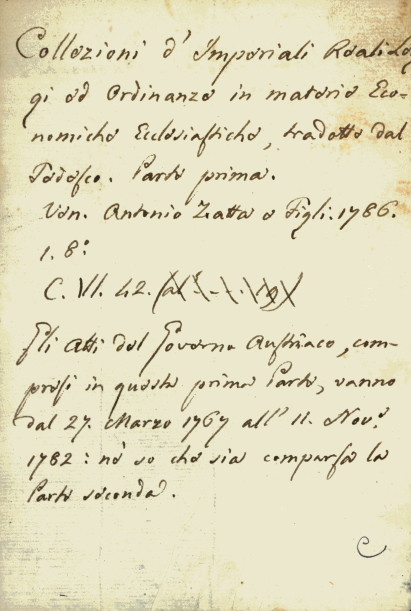 Collezioni d' Imperiali Reali Leg
gi ed Ordinanze in materie Eco-
nomiche Ecclesiastiche, tradotte dal
Tedesco. Parte prima.
Ven. Antonio Zatta e Figli. 1786.
1. 8.°
C. VI. 42.
Gli Atti del Governo Austriaco, com-
presi in questa prima Parte, vanno
dal 27. Marzo 1767 all' 11. Nov.e
1782: nè so che sia comparsa la
Parte seconda.
C